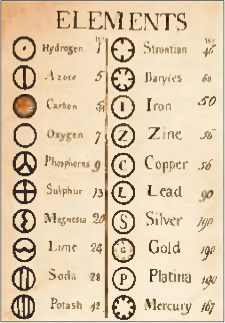 ELEMENTS
Wt Wt
Hydrogen 1 Strontian 46
Azote 5 Barytes 68
Carbon 5 I Iron 50
Oxygen 7 Z Zinc 56
Phosphorus 9 C Copper 56
Sulphur 13 L Lead 90
Magnesia 20 S Silver 190
Lime 24 G Gold 190
Soda 28 P Platina 190
Potash 42 Mercury 167